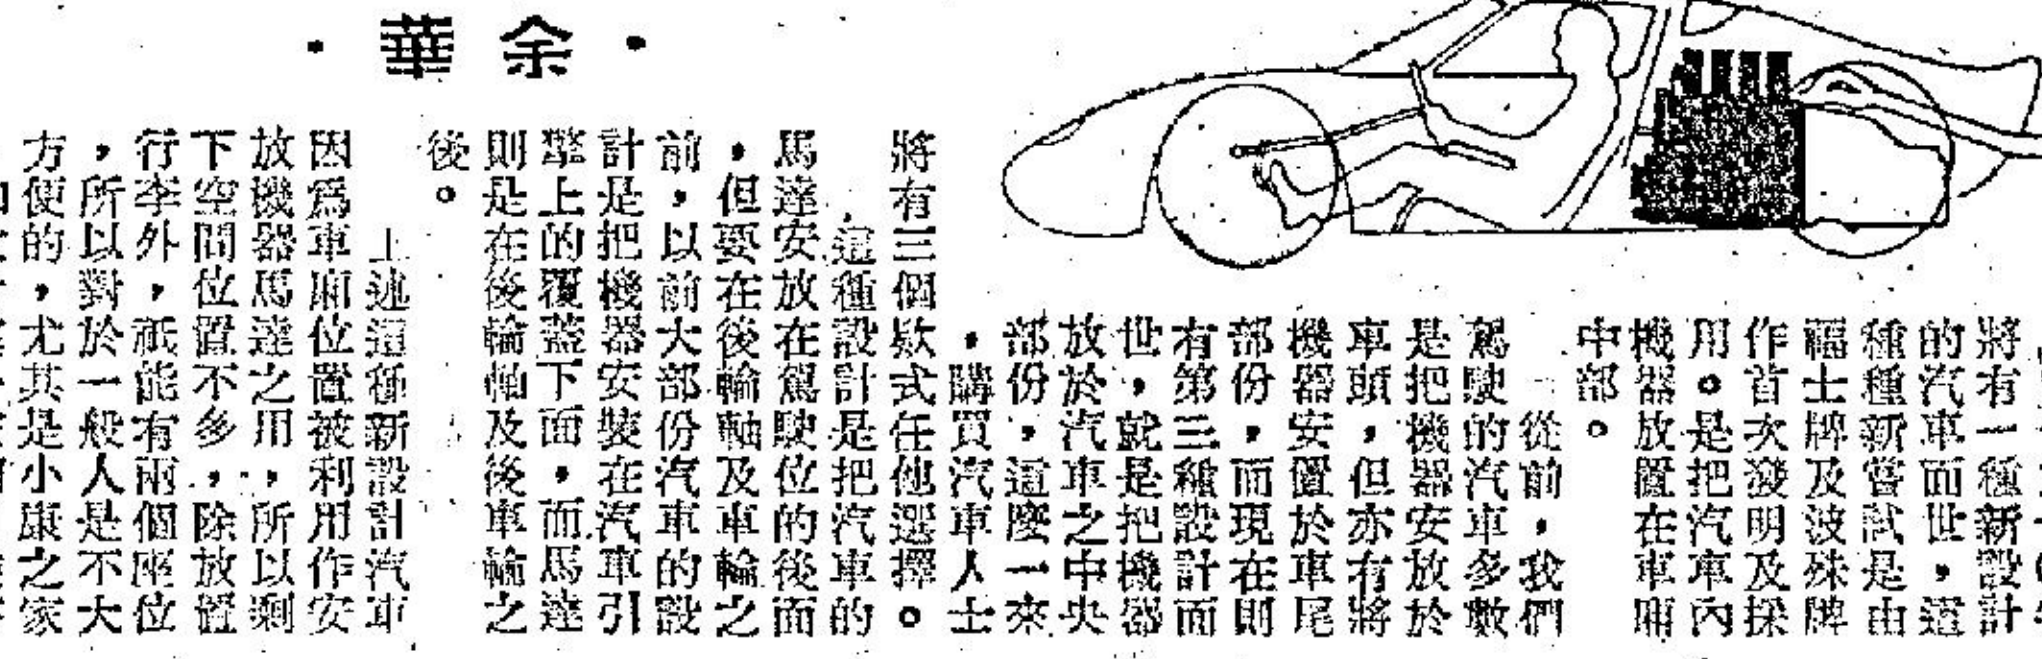 ・余華・
將有一種新設計
的汽車面世，這
種種新嘗試是由
福士牌及波殊牌
作首次發明及採
用。是把汽車內
機器放置在車廂
中部。
從前，我們
駕駛的汽車多數
是把機器安放於
車頭，但亦有將
機器安置於車尾
部份，而現在則
有第三種設計面
世，就是把機器
放於汽車之中央
部份，這麼一來
，購買汽車人士
將有三個欵式任他選擇。
這種設計是把汽車的
馬達安放在駕駛位的後面
，但要在後輪軸及車輪之
前，以前大部份汽車的設
計是把機器安裝在汽車引
擎上的覆蓋下面，而馬達
則是在後輪軸及後車輪之
後。
上述這種新設計汽車
因爲車廂位置被利用作安
放機器馬達之用，所以剩
下空間位置不多，除放置
行李外，祇能有兩個座位
，所以對於一般人是不大
方便的，尤其是小康之家